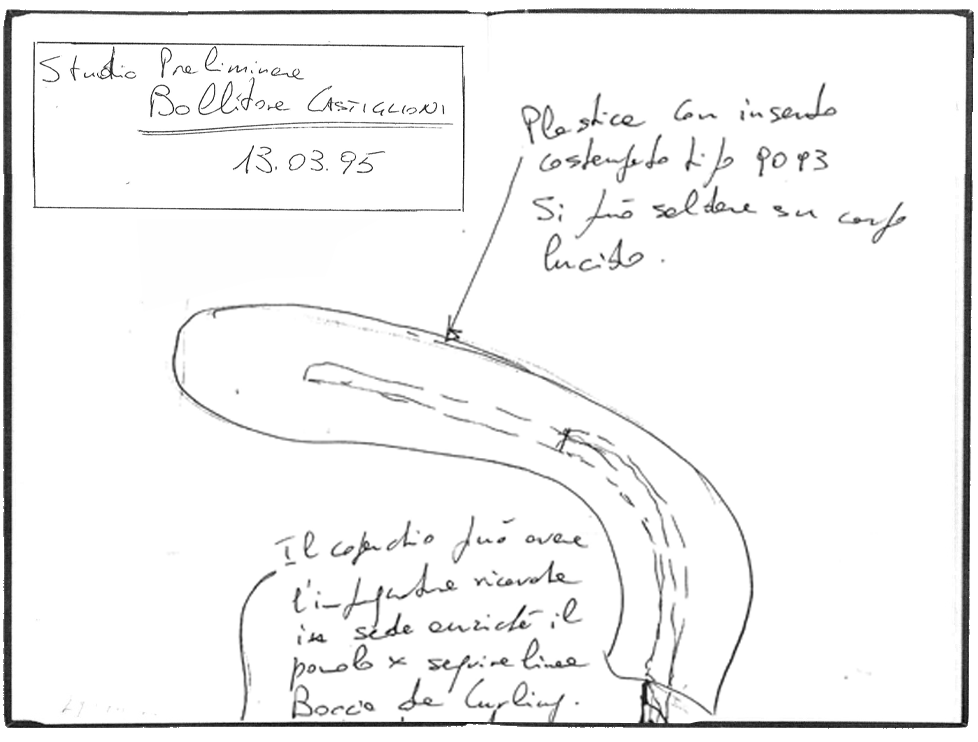 Studio Preliminare
Bollitore CASTIGLIONI
13.03.95
Plastica con inserto
costampato tipo 9093
Si può saldare su corpo
lucido.
Il coperchio può avere
l'impugnatura ricavata
in sede anziché il
pomolo x seguire linea
Boccia da Curling.